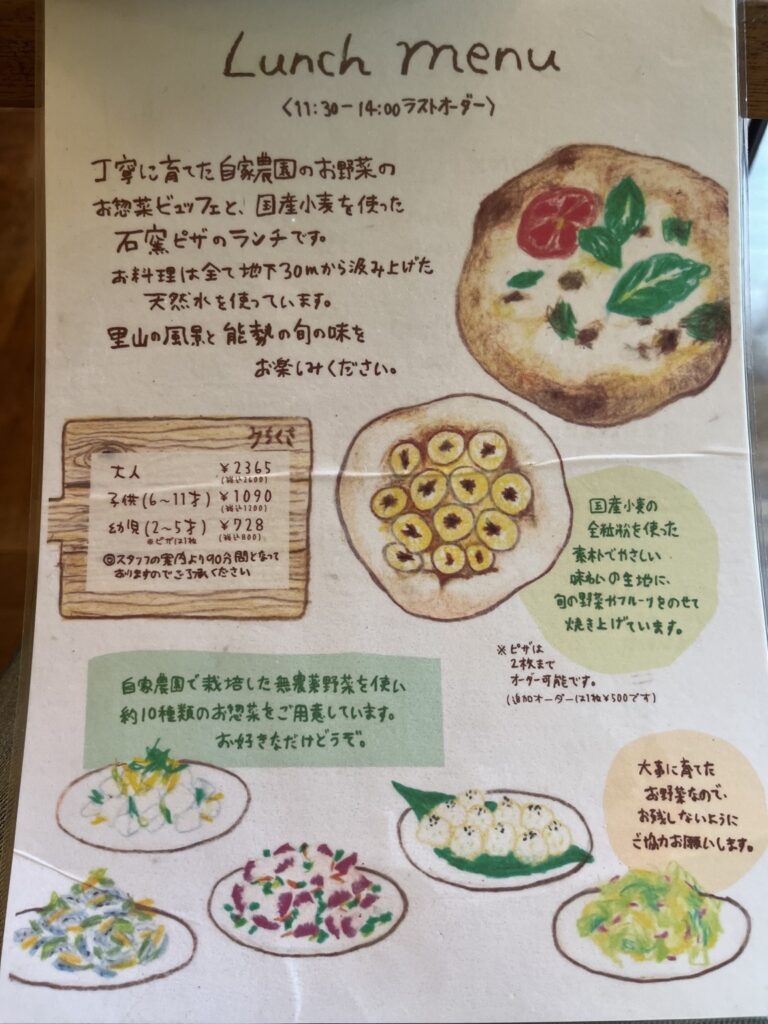 Lunch menu
〈11:30－14:00ラストオーダー〉
丁寧に育てた自家農園のお野菜の
お惣菜ビュッフェと、国産小麦を使った
石窯ピザのランチです。
お料理は全て地下30mから汲み上げた
天然水を使っています。
里山の風景と能勢の旬の味を
お楽しみください。
みちくさ
大人 ￥2365
(税込2600)
子供(6～11才) ￥1090
(税込1200)
幼児(2～5才) ￥728
※ピザは1枚 (税込800)
◎スタッフの案内より90分間となって
おりますのでご了承ください
国産小麦の
全粒粉を使った
素朴でやさしい
味わいの生地に、
旬の野菜やフルーツをのせて
焼き上げています。
※ピザは
2枚まで
オーダー可能です。
(追加オーダーは1枚￥500です)
自家農園で栽培した無農薬野菜を使い
約10種類のお惣菜をご用意しています。
お好きなだけどうぞ。
大事に育てた
お野菜なので、
お残しないように
ご協力お願いします。